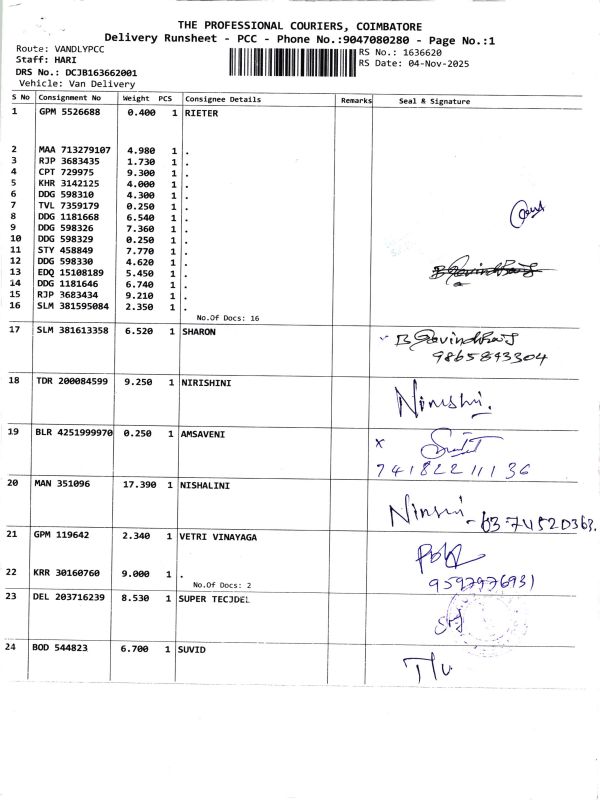 THE PROFESSIONAL COURIERS, COIMBATORE
Delivery Runsheet - PCC - Phone No.:9047080280 - Page No.:1
Route: VANDLYPCC
Staff: HARI
DRS No.: DCJB163662001
Vehicle: Van Delivery
RS No.: 1636620
RS Date: 04-Nov-2025
S No Consignment No Weight PCS Consignee Details Remarks Seal & Signature
1 GPM 5526688 0.400 1 RIETER
2 MAA 713279107 4.980 1 .
3 RJP 3683435 1.730 1 .
4 CPT 729975 9.300 1 .
5 KHR 3142125 4.000 1 .
6 DDG 598310 4.300 1 .
7 TVL 7359179 0.250 1 .
8 DDG 1181668 6.540 1 .
9 DDG 598326 7.360 1 .
10 DDG 598329 0.250 1 .
11 STY 458849 7.770 1 .
12 DDG 598330 4.620 1 .
13 EDQ 15108189 5.450 1 .
14 DDG 1181646 6.740 1 .
15 RJP 3683434 9.210 1 .
16 SLM 381595084 2.350 1 .
No.Of Docs: 16
17 SLM 381613358 6.520 1 SHARON B Govindharaj
9865893304
18 TDR 200084599 9.250 1 NIRISHINI
19 BLR 4251999970 0.250 1 AMSAVENI x
7418221136
20 MAN 351096 17.390 1 NISHALINI
21 GPM 119642 2.340 1 VETRI VINAYAGA
22 KRR 30160760 9.000 1 . 9597976931
No.Of Docs: 2
23 DEL 203716239 8.530 1 SUPER TECJDEL
24 BOD 544823 6.700 1 SUVID